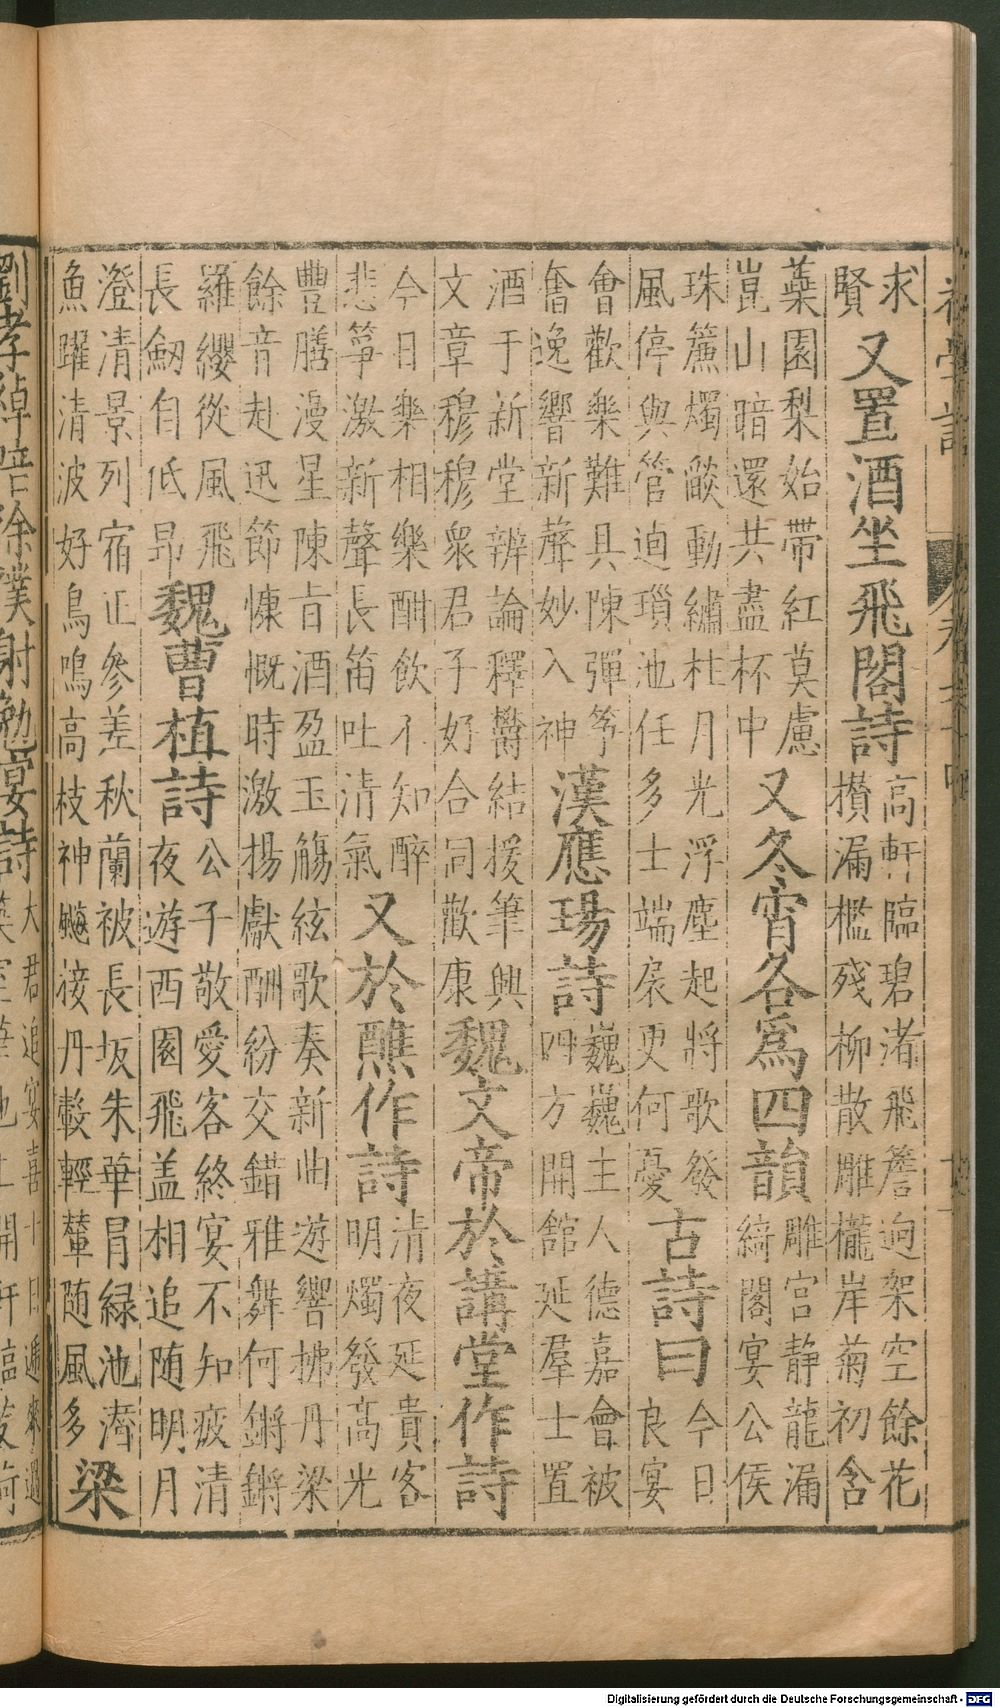 求
賢
又置酒坐飛閣詩
高軒臨碧渚飛簷迥架空餘花
攅漏檻殘柳散雕櫳岸菊初含
蘂園梨始帶紅莫慮
崑山暗還共盡杯中
又冬宵各爲四韻
雕宫靜龍漏
綺閣宴公侯
珠簾燭燄動繡柱月光浮塵起將歌發
風停與管逈瑣池任多士端扆更何憂
古詩曰
今日
良宴
會歡樂難具陳彈筝
奮逸響新聲妙入神
漢應瑒詩
巍巍主人德嘉會被
四方開館延羣士置
酒于新堂辨論釋欝結援筆興
文章穆穆衆君子好合同歡康
魏文帝於講堂作詩
今日樂相樂酣飲不知醉
悲筝激新聲長笛吐清氣
又於譙作詩
清夜延貴客
明燭發髙光
豐膳漫星陳旨酒盈玉觴絃歌奏新曲遊響拂丹梁
餘音赴迅節慷慨時激揚獻酬紛交錯雅舞何鏘鏘
羅纓從風飛
長劒自低昂
魏曹植詩
公子敬愛客終宴不知疲清
夜遊西園飛盖相追随明月
澄清景列宿正參差秋蘭被長坂朱華冐緑池濳
魚躍清波好鳥鳴高枝神飈接丹轂輕輦随風多
梁
劉孝綽陪徐僕射勉宴詩
大君追宴喜十日遞來過
Digitalisierung gefördert durch die Deutsche Forschungsgemeinschaft - DFG